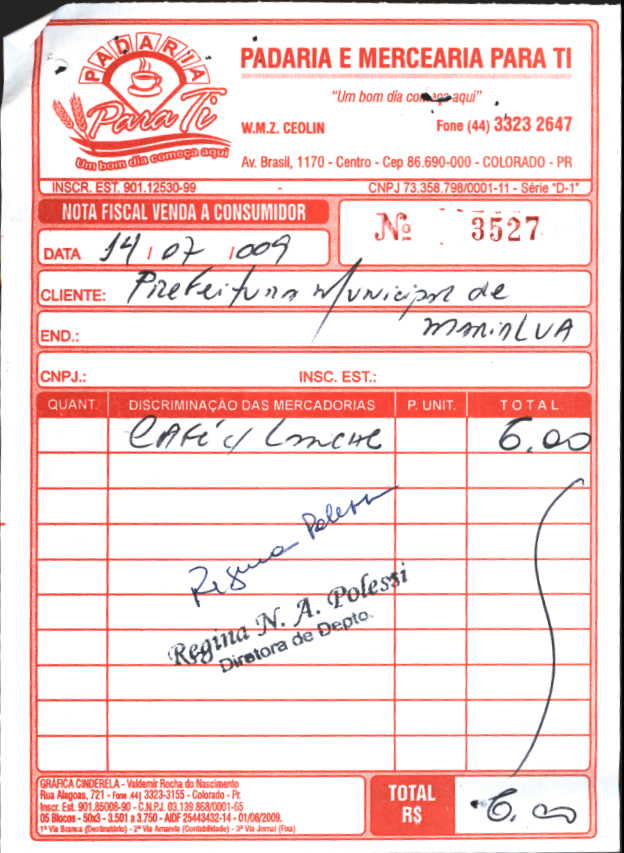 PADARIA
Para Ti
Um bom dia começa aqui
PADARIA E MERCEARIA PARA TI
"Um bom dia começa aqui"
W.M.Z. CEOLIN
Fone (44) 3323 2647
Av. Brasil, 1170 - Centro - Cep 86.690-000 - COLORADO - PR
INSCR. EST. 901.12530-99 - CNPJ 73.358.798/0001-11 - Série "D-1"
NOTA FISCAL VENDA A CONSUMIDOR
Nº 3527
DATA 14 / 07 / 009
CLIENTE: Prefeitura Municipal de
END.: MARIALVA
CNPJ.: INSC. EST.:
QUANT. DISCRIMINAÇÃO DAS MERCADORIAS P. UNIT. TOTAL
CAFÉ c/ LANCHE 6,00
Regina Polessi
Regina N. A. Polessi
Diretora de Depto.
GRÁFICA CINDERELA - Valdemir Rocha do Nascimento
Rua Alagoas, 721 - Fone (44) 3323-3155 - Colorado - Pr.
Inscr. Est. 901.85008-90 - C.N.P.J. 03.139.868/0001-65
05 Blocos - 50x3 - 3.501 a 3.750 - AIDF 25443432-14 - 01/06/2009.
1ª Via Branca (Destinatário) - 2ª Via Amarela (Contabilidade) - 3ª Via Jornal (Fixa)
TOTAL R$ 6,00